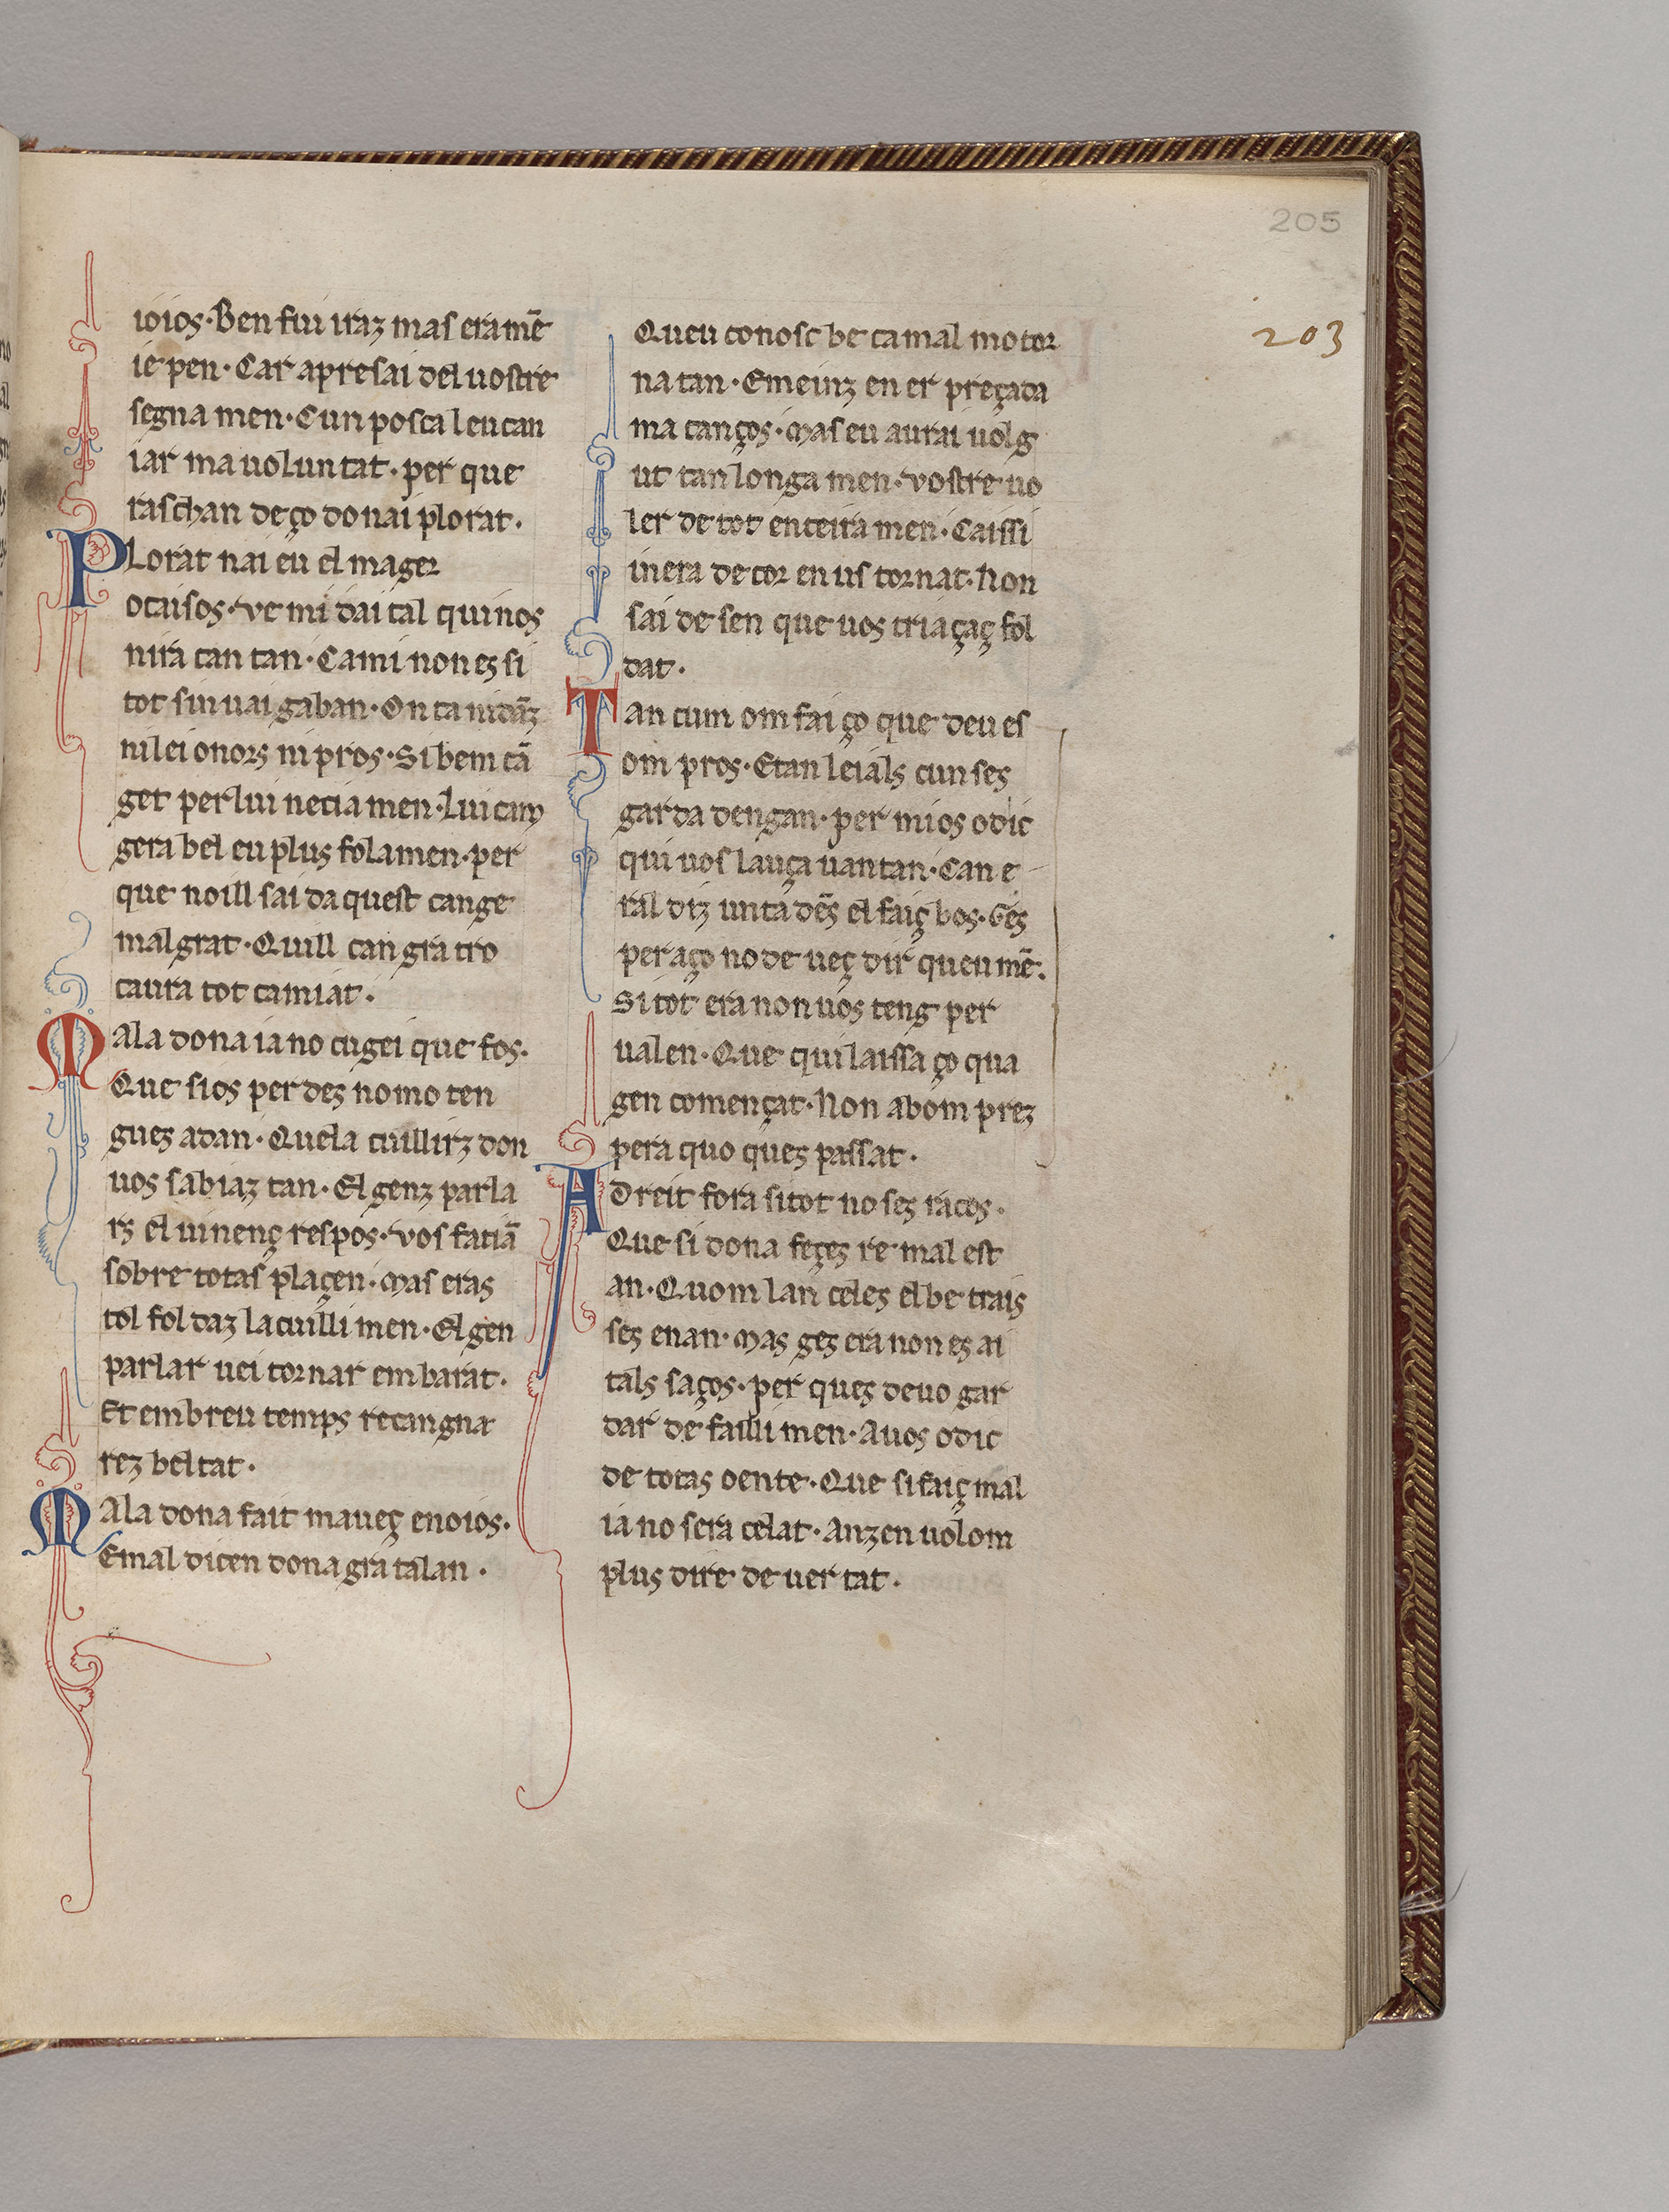 205
203
ioios·Ben fui iraz mas era mē
ie pen·Car apre sai del uostre
segna men·Cun posca leu can
iar ma uoluntat·per que
raschan de ço do nai plorat·
PLorat nai eu el mager
ocusos·ve mi dai tal qui nos
nira can tan·Cami non es si
tot sui uai gaban·On ta ni dāz
ni lei onors ni pros·Si bem cā
get per lui necia men·Lui cam
gera bel eu plus fola men·per
que noill sai da quest cange
mal grat·Quill can gra tro
caura tot camiat·
Mala dona ia no cugei que fos·
Que sios per dez no mo ten
gues adan·Quela cuillirz don
uos sabiaz tan·El genz parla
rs el uinenç respos·vos faciā
sobre totas plaçen·mas eras
tol fol daz la cuilli men·El gen
parlar uei tornar em barat·
Et em breu temps recangna
rez beltat·
Mala dona fait maueç enoios·
E mal dicen dona gra talan·
Queu conosc be ca mal mo tor
na tan·E meinz en er preçada
ma canços·mas eu aurai uolg
ut tan longa men·vostre uo
ler de tot enteira men·Caissi
inera de cor en us tornat·Non
sai de sen que uos triaçaç fol
dat·
Tan cum om fai ço que deu es
om pros·E tan leials cun ses
garda dengan·per mi os o dic
qui uos lauça uantan·Can e
ral diz unta dēs el faiç bos·Ges
per aço no de ueç dir queu mē·
Si tot era non uos teng per
ualen·Que qui laissa ço qua
gen començat·Non a bom prez
pera quo ques passat·
ADreit fora si tot no ses racos·
Que si dona feçes re mal est
an·Quom lan celes el be trais
ses enan·mas ges era non es ai
tals saços·per ques deuo gar
dar de failli men·A uos o dic
de totas oente·Que si faiç mal
ia no sera celat·Anzen uol om
plus dire de uer tat·